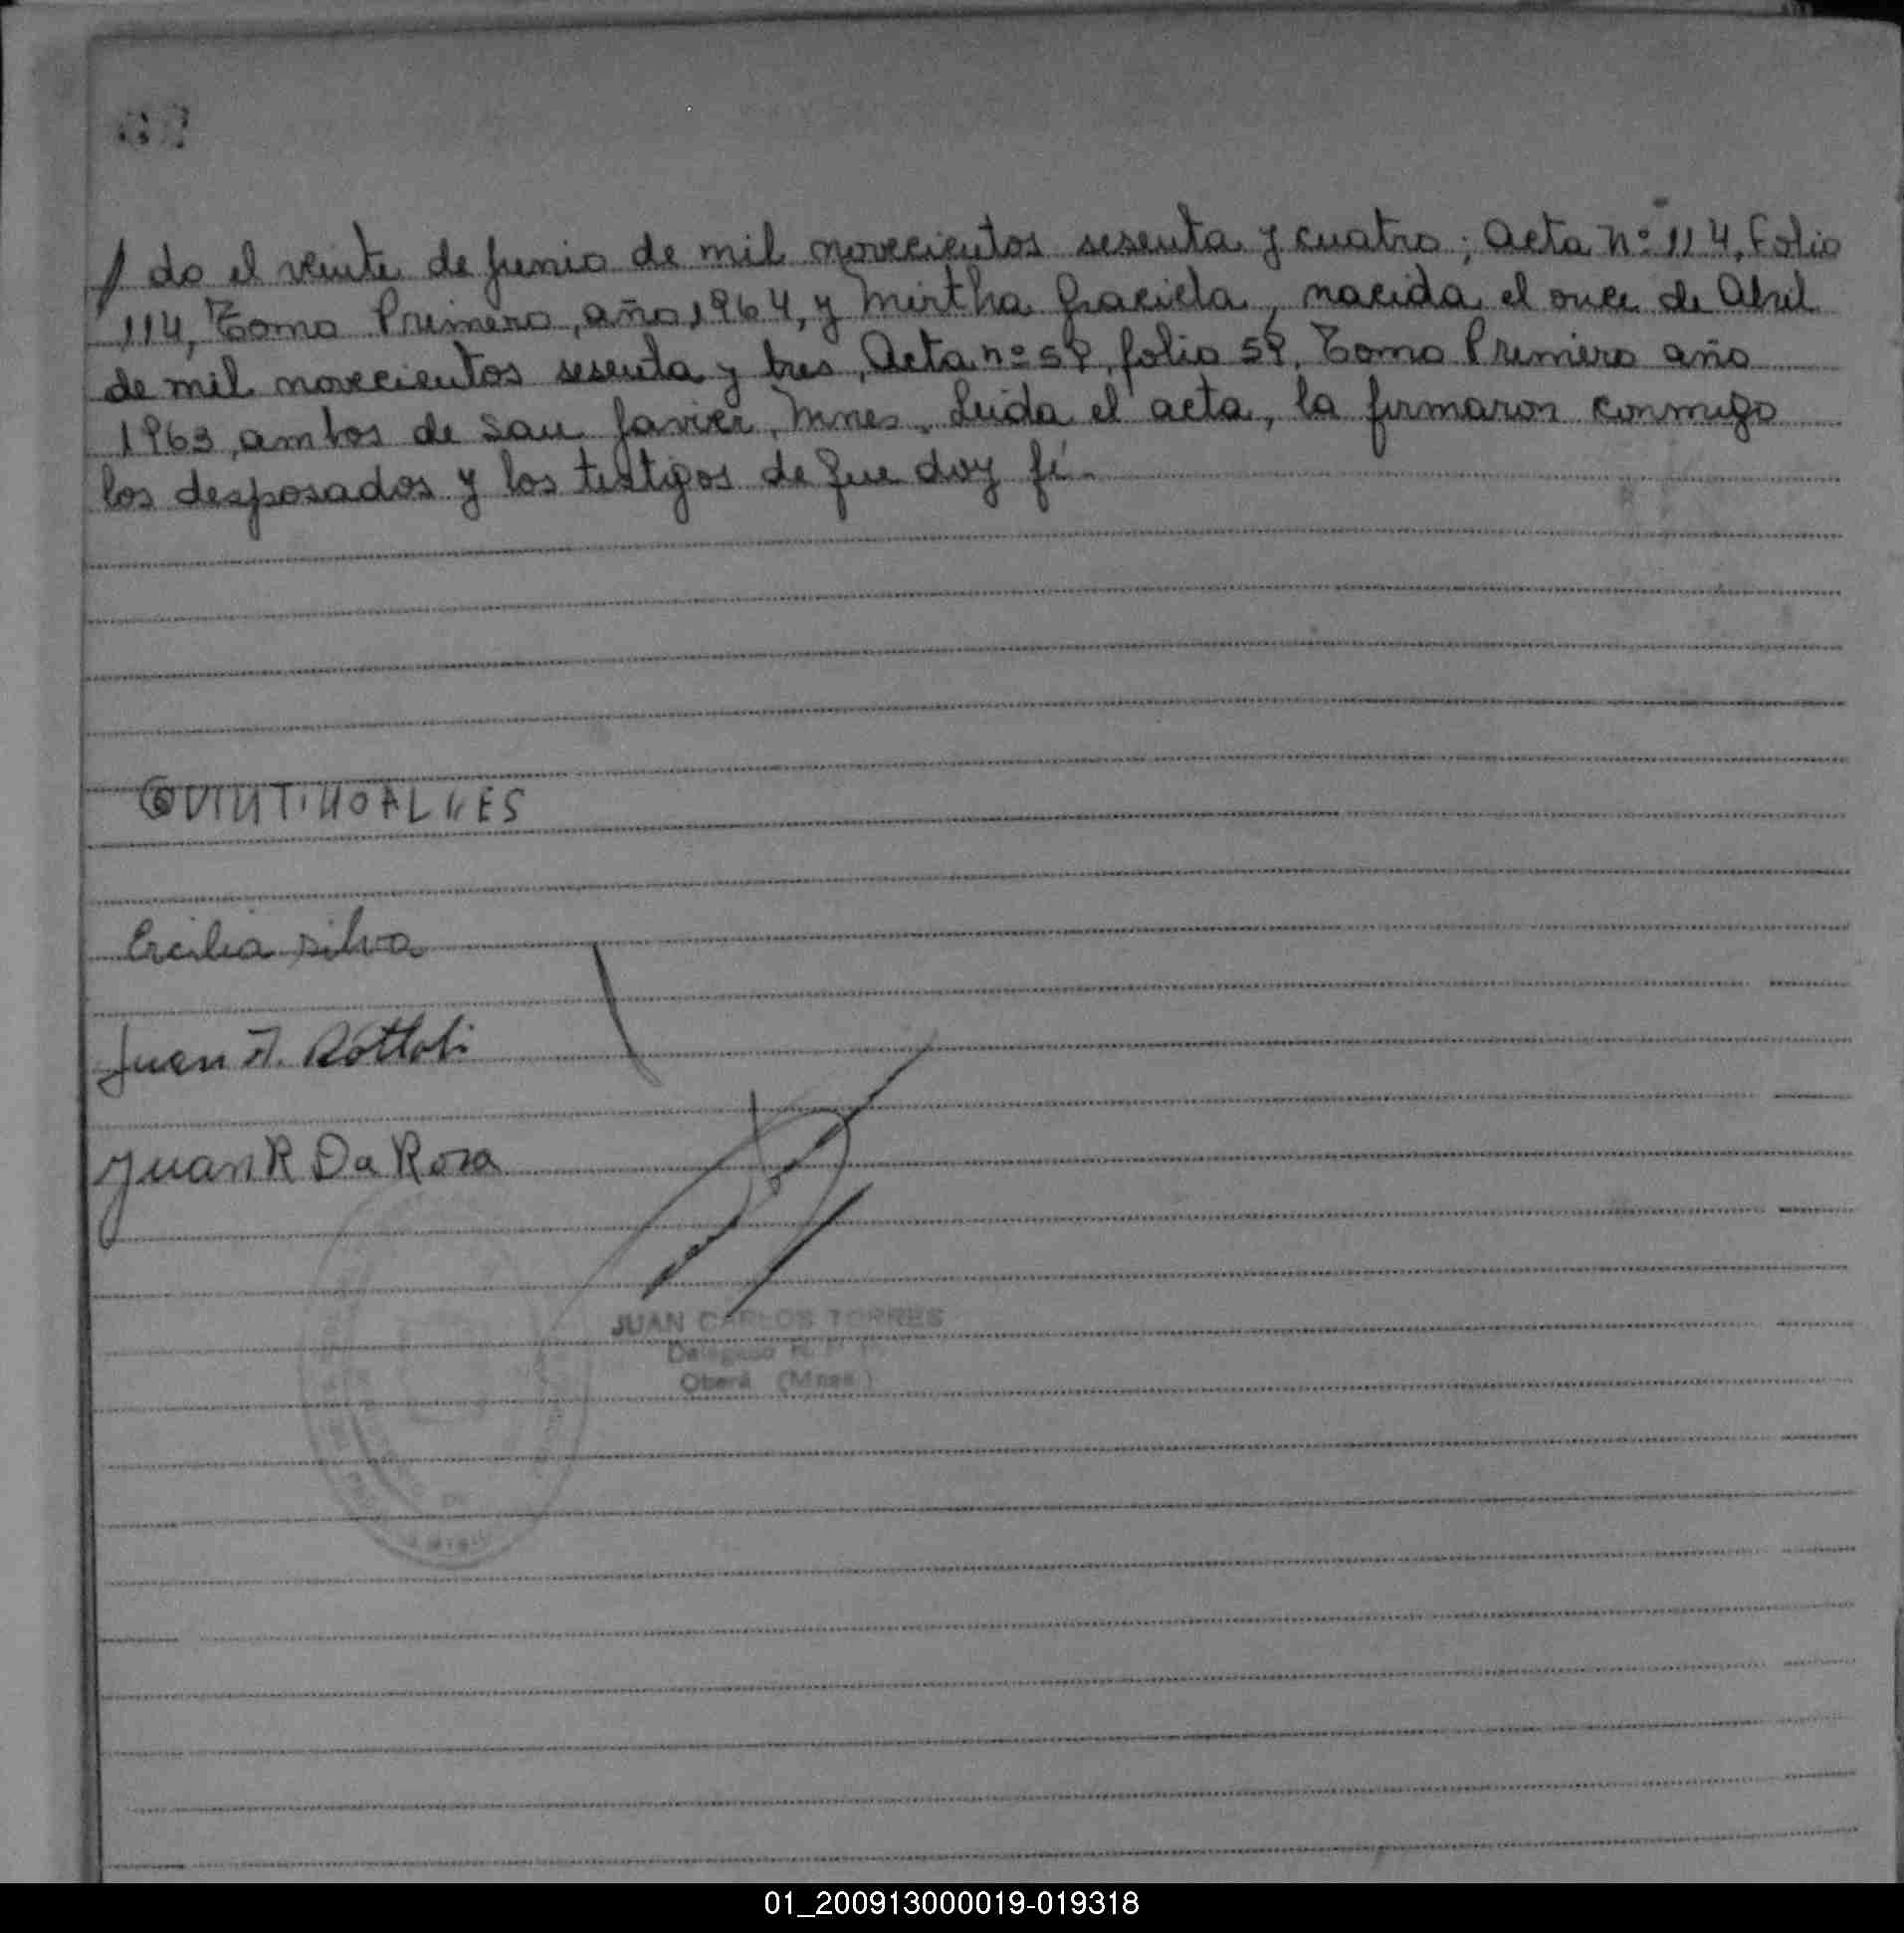 / do el veinte de junio de mil novecientos sesenta y cuatro; Acta nº 114, Folio
114, Tomo Primero, año 1964, y Mirtha Graciela, nacida el once de Abril
de mil novecientos sesenta y tres, Acta nº 59, folio 59, Tomo Primero año
1963, ambos de San Javier, Mnes. Leida el acta, la firmaron conmigo
los desposados y los testigos de que doy fé.-
QUINTINO ALVES
Ercilia silva
Juan A. Rottoli
Juan R Da Rosa
JUAN CARLOS TORRES
Delegado R. P. P.
Oberá (Mnes.)
01_200913000019-019318